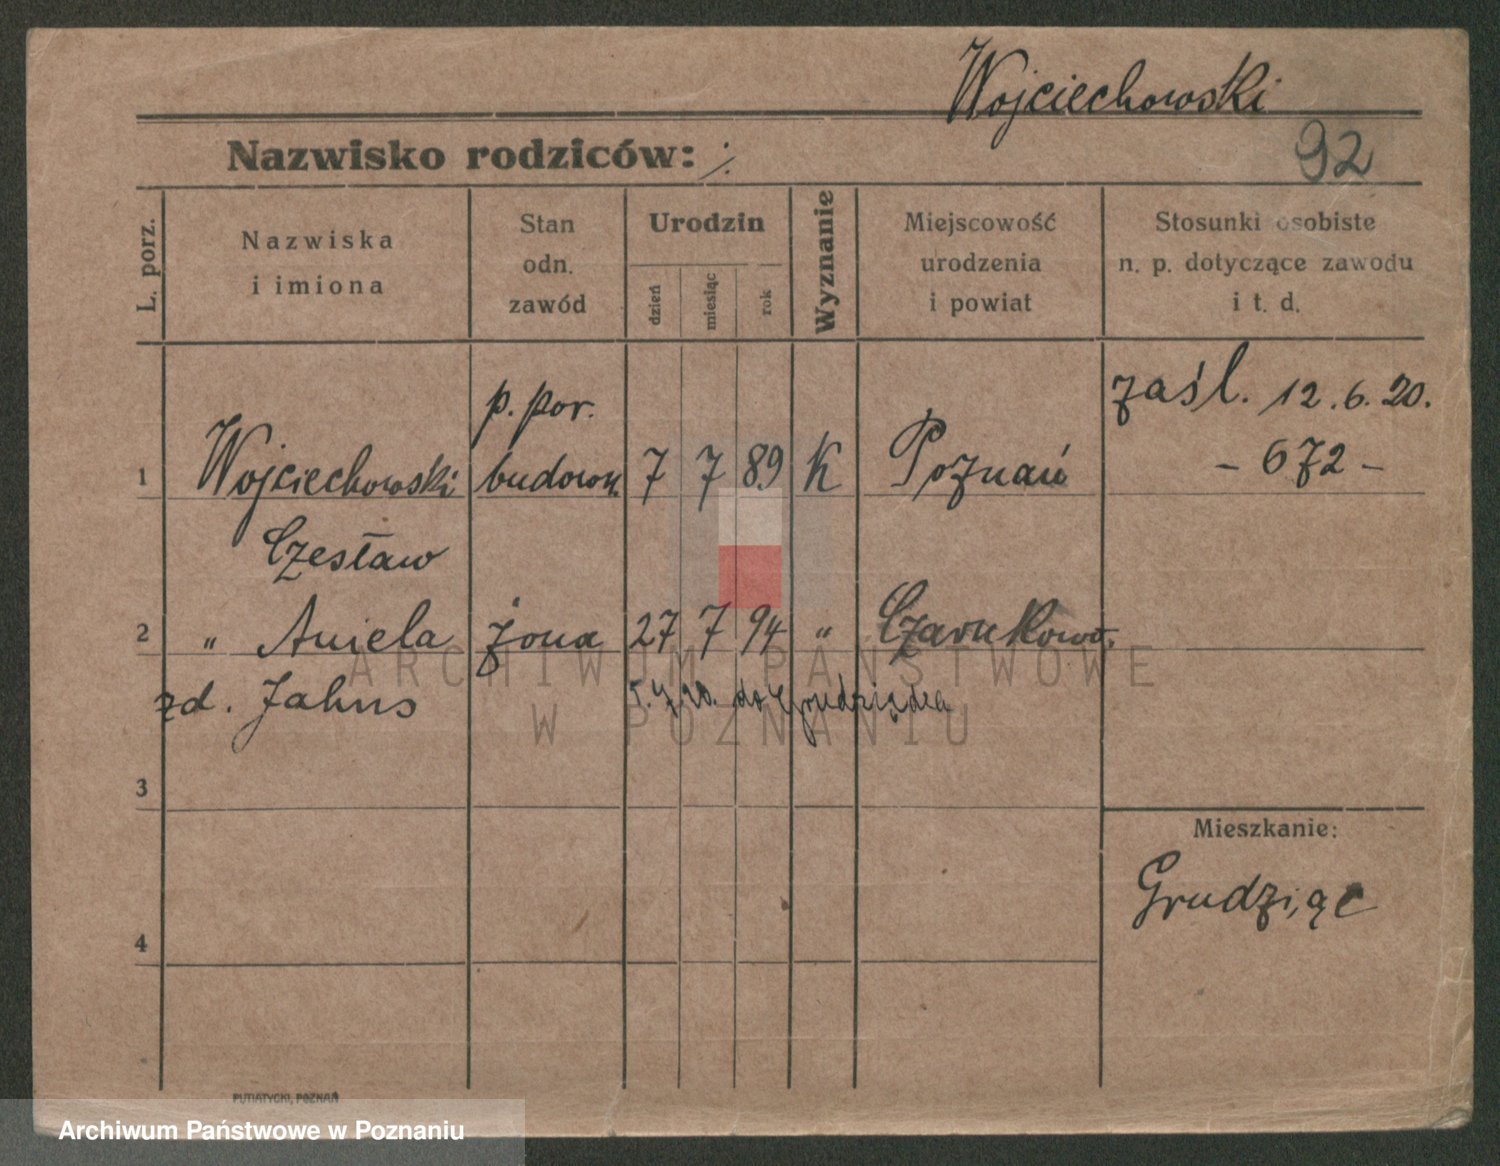 Wojciechowski
92
Nazwisko rodziców: ./.
L. porz.
Nazwiska i imiona
Stan odn. zawód
Urodzin
dzień
miesiąc
rok
Wyznanie
Miejscowość urodzenia i powiat
Stosunki osobiste n. p. dotyczące zawodu i t. d.
p. por.
zaśl. 12.6.20.
1 Wojciechowski budown. 7 7 89 K Poznań - 672 -
Czesław
2 " Aniela żona 27 7 94 " Czarnkowo.
zd. Jahns 5.7.20. do Grudziądza
3
Mieszkanie:
Grudziąc
4
ARCHIWUM PAŃSTWOWE
W POZNANIU
PUTIATYCKI, POZNAŃ
Archiwum Państwowe w Poznaniu